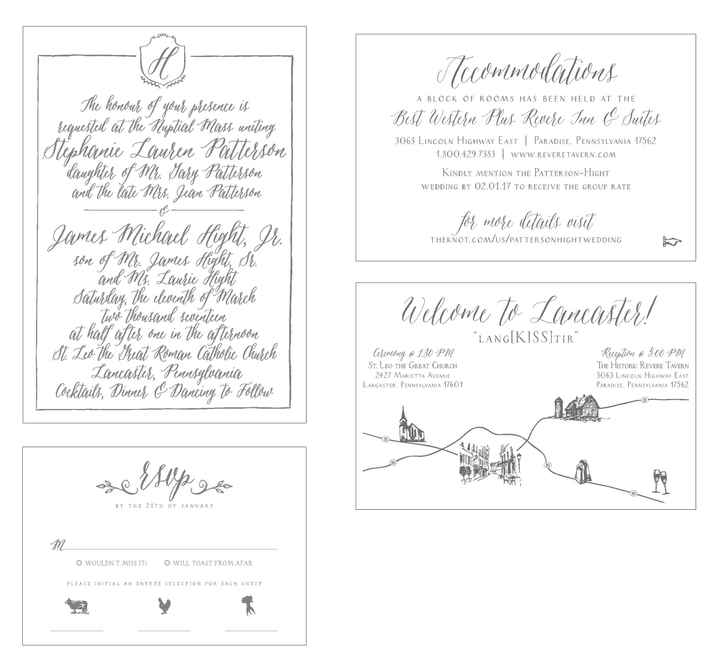 H
The honour of your presence is
requested at the Nuptial Mass uniting
Stephanie Lauren Patterson
daughter of Mr. Gary Patterson
and the late Mrs. Jean Patterson
&
James Michael Hight, Jr.
son of Mr. James Hight, Sr.
and Ms. Laurie Hight
Saturday, the eleventh of March
two thousand seventeen
at half after one in the afternoon
St. Leo the Great Roman Catholic Church
Lancaster, Pennsylvania
Cocktails, Dinner & Dancing to Follow
rsvp
BY THE 28TH OF JANUARY
M
WOULDN'T MISS IT!
WILL TOAST FROM AFAR
PLEASE INITIAL AN ENTRÉE SELECTION FOR EACH GUEST
Accommodations
A BLOCK OF ROOMS HAS BEEN HELD AT THE
Best Western Plus Revere Inn & Suites
3063 LINCOLN HIGHWAY EAST | PARADISE, PENNSYLVANIA 17562
1.800.429.7383 | WWW.REVERETAVERN.COM
KINDLY MENTION THE PATTERSON-HIGHT
WEDDING BY 02.01.17 TO RECEIVE THE GROUP RATE
for more details visit
THEKNOT.COM/US/PATTERSONHIGHTWEDDING
Welcome to Lancaster!
"LANG[KISS]TIR"
Ceremony @ 1:30 PM
ST. LEO THE GREAT CHURCH
2427 MARIETTA AVENUE
LANCASTER, PENNSYLVANIA 17601
Reception @ 5:00 PM
THE HISTORIC REVERE TAVERN
3063 LINCOLN HIGHWAY EAST
PARADISE, PENNSYLVANIA 17562